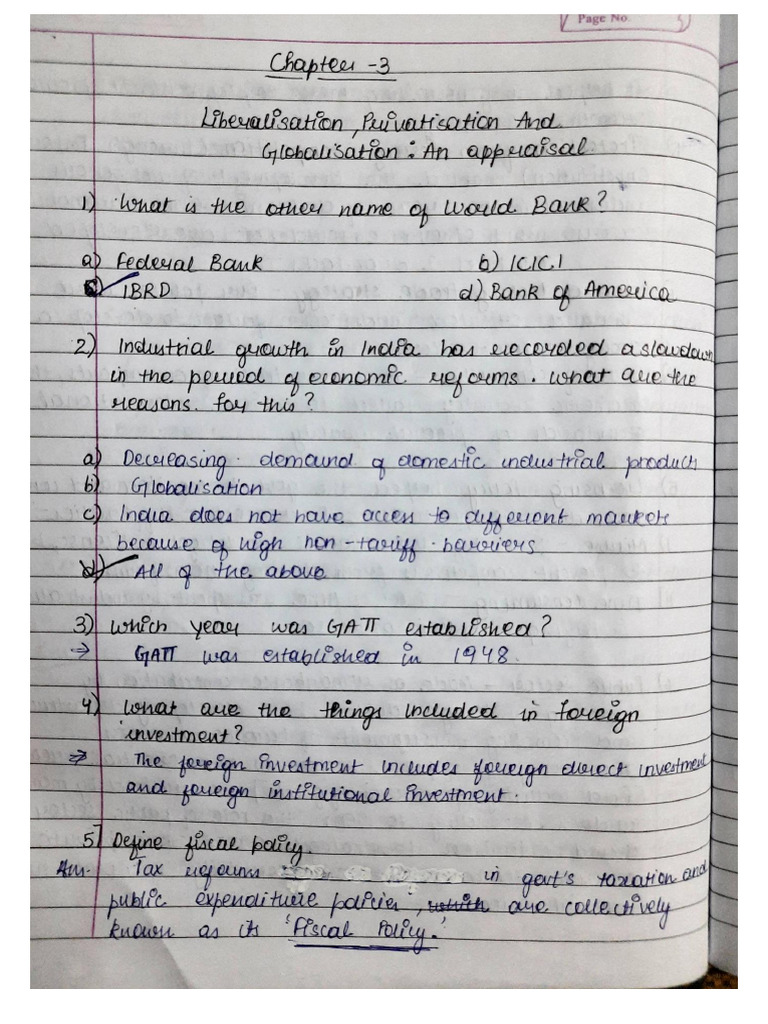 Page No.
Chapter -3
Liberalisation, Privatisation And
Globalisation: An appraisal.
1) What is the other name of World Bank?
a) Federal Bank b) ICICI
c) IBRD d) Bank of America
2) Industrial growth in India has recorded a slowdown
in the period of economic reforms. What are the
reasons for this?
a) Decreasing demand of domestic industrial products
b) Globalisation
c) India does not have access to different markets
because of high non-tariff barriers
d) All of the above
3) Which year was GATT established?
⇒ GATT was established in 1948.
4) What are the things included in foreign
investment?
⇒ The foreign investment includes foreign direct investment
and foreign institutional investment.
5) Define fiscal policy.
Ans. Tax reforms in govt's taxation and
public expenditure policies, which are collectively
known as its 'Fiscal Policy.'